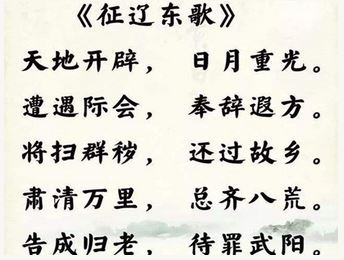 《征辽东歌》
天地开辟，日月重光。
遭遇际会，奉辞遐方。
将扫群秽，还过故乡。
肃清万里，总齐八荒。
告成归老，待罪武阳。